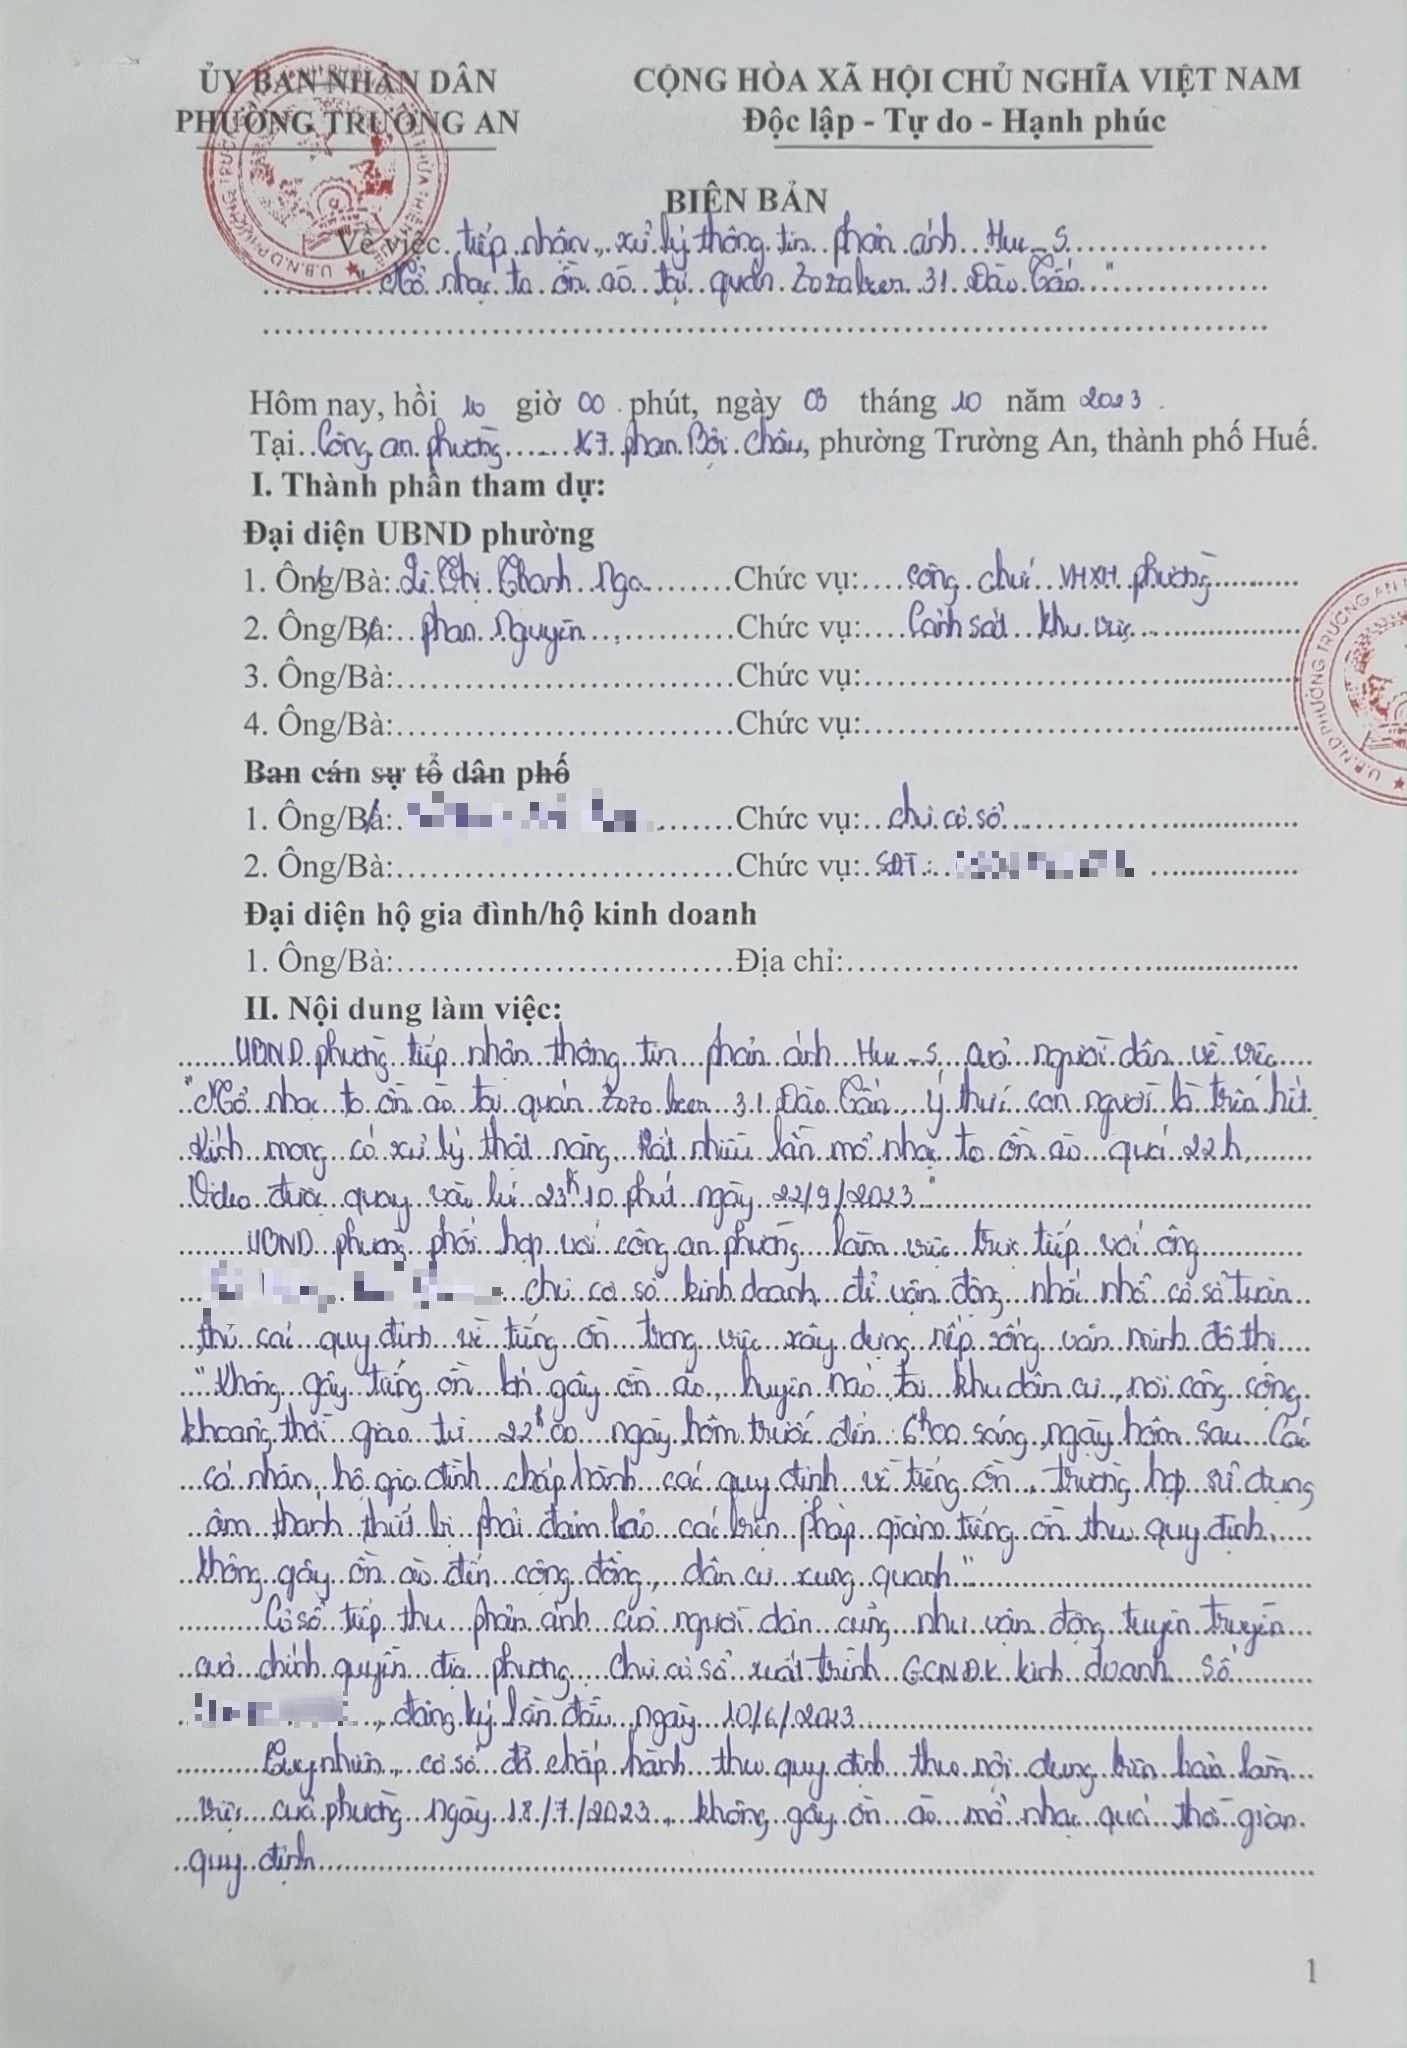 ỦY BAN NHÂN DÂN
PHƯỜNG TRƯỜNG AN
CỘNG HÒA XÃ HỘI CHỦ NGHĨA VIỆT NAM
Độc lập - Tự do - Hạnh phúc
BIÊN BẢN
Về việc tiếp nhận, xử lý thông tin phản ánh Hue-S
"Mở nhạc to ồn ào tại quán Zozo beer 31 Đào Tấn"
Hôm nay, hồi 10 giờ 00 phút, ngày 03 tháng 10 năm 2023.
Tại Công an phường 167 Phan Bội Châu, phường Trường An, thành phố Huế.
I. Thành phần tham dự:
Đại diện UBND phường
1. Ông/Bà: Lê Thị Thanh Nga Chức vụ: công chức VHXH phường
2. Ông/Bà: Phan Nguyên Chức vụ: Cảnh sát khu vực
3. Ông/Bà: Chức vụ:
4. Ông/Bà: Chức vụ:
Ban cán sự tổ dân phố
1. Ông/Bà: Chức vụ: chủ cơ sở
2. Ông/Bà: Chức vụ: SĐT:
Đại diện hộ gia đình/hộ kinh doanh
1. Ông/Bà: Địa chỉ:
II. Nội dung làm việc:
UBND phường tiếp nhận thông tin phản ánh Hue-S của người dân về việc
"Mở nhạc to ồn ào tại quán Zozo beer 31 Đào Tấn, ý thức con người là trên hết.
Kính mong có xử lý thật nặng. Rất nhiều lần mở nhạc to ồn ào quá 22h.
Video được quay vào lúc 23h10 phút ngày 22/9/2023"
UBND phường phối hợp với công an phường làm việc trực tiếp với ông
chủ cơ sở kinh doanh để vận động, nhắc nhở cơ sở tuân
thủ các quy định về tiếng ồn trong việc xây dựng nếp sống văn minh đô thị
"Không gây tiếng ồn lớn gây ồn ào, huyên náo tại khu dân cư, nơi công cộng
khoảng thời gian từ 22h00 ngày hôm trước đến 6h00 sáng ngày hôm sau. Các
cá nhân, hộ gia đình chấp hành các quy định về tiếng ồn, trường hợp sử dụng
âm thanh, thiết bị phải đảm bảo các biện pháp giảm tiếng ồn theo quy định,
không gây ồn ào đến cộng đồng, dân cư xung quanh"
Cơ sở tiếp thu phản ánh của người dân cũng như vận động, tuyên truyền
của chính quyền địa phương. Chủ cơ sở xuất trình GCNĐK kinh doanh số
, đăng ký lần đầu ngày 10/6/2023
Tuy nhiên, cơ sở đã chấp hành theo quy định theo nội dung biên bản làm
việc của phường ngày 18/7/2023, không gây ồn ào mở nhạc quá thời gian
quy định
1